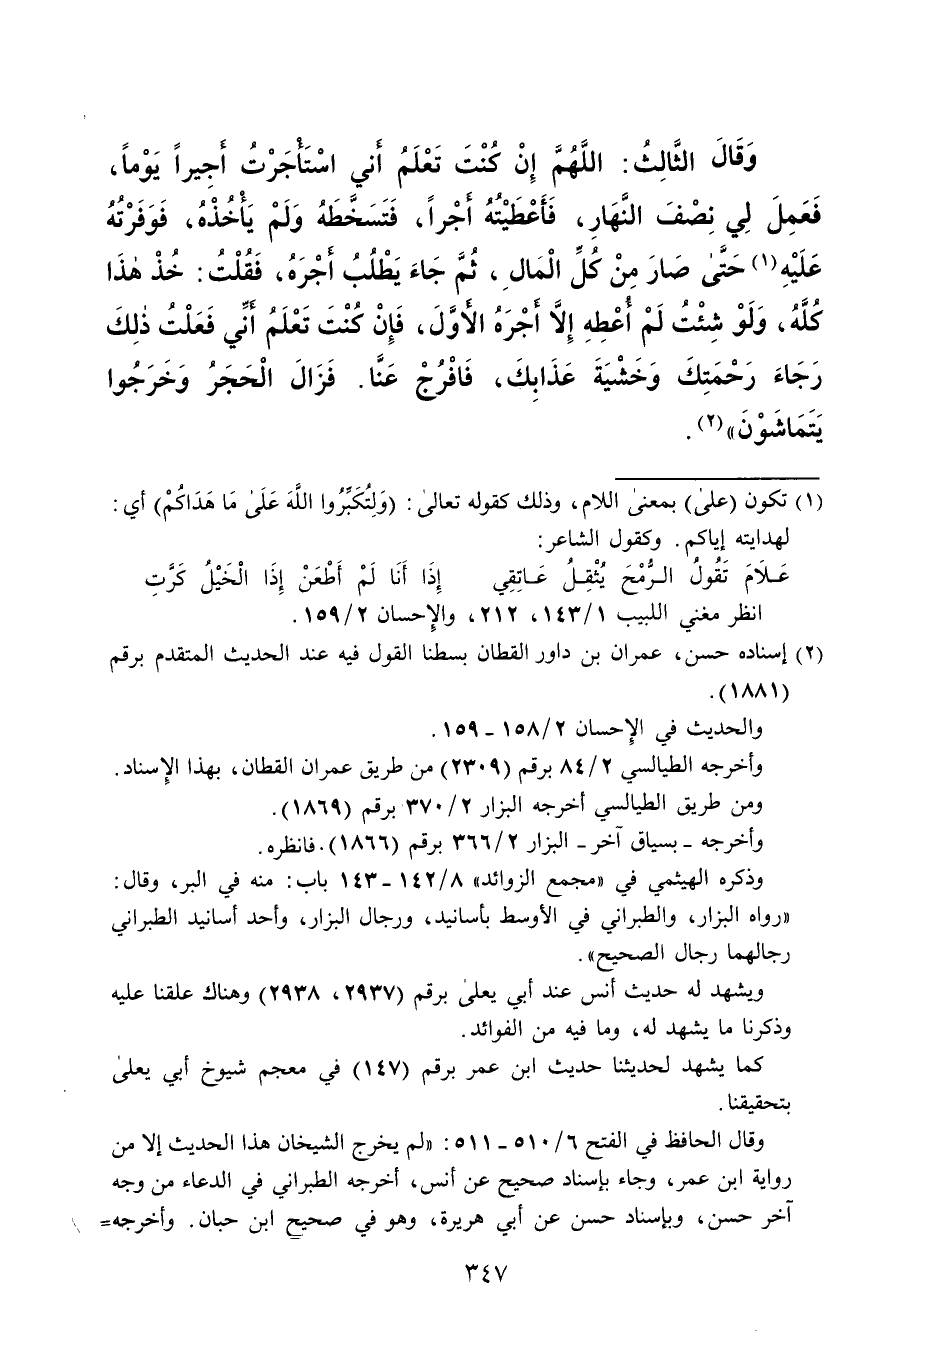 وَقَالَ الثَّالِثُ: اللَّهُمَّ إِنْ كُنْتَ تَعْلَمُ أَني اسْتَأْجَرْتُ أَجِيراً يَوْماً،
فَعَمِلَ لِي نِصْفَ النَّهَارِ، فَأَعْطَيْتُهُ أَجْراً، فَتَسَخَّطَهُ وَلَمْ يَأْخُذْهُ، فَوَفَرْتُهُ
عَلَيْهِ(١) حَتَّىٰ صَارَ مِنْ كُلِّ الْمَالِ، ثُمَّ جَاءَ يَطْلُبُ أَجْرَهُ، فَقُلْتُ: خُذْ هٰذَا
كُلَّهُ، وَلَوْ شِئْتُ لَمْ أُعْطِهِ إِلَّا أَجْرَهُ الْأَوَّلَ، فَإِنْ كُنْتَ تَعْلَمُ أَنِّي فَعَلْتُ ذٰلِكَ
رَجَاءَ رَحْمَتِكَ وَخَشْيَةَ عَذَابِكَ، فَافْرُجْ عَنَّا. فَزَالَ الْحَجَرُ وَخَرَجُوا
يَتَمَاشَوْنَ»(٢).
(١) تكون (علىٰ) بمعنىٰ اللام، وذلك كقوله تعالىٰ: (وَلِتُكَبِّرُوا اللَّهَ عَلَىٰ مَا هَدَاكُمْ) أي:
لهدايته إياكم. وكقول الشاعر:
عَـلَامَ تَقُولُ الـرُّمْحَ يُثْقِـلُ عَـاتِقِي إِذَا أَنَا لَمْ أَطْعَنْ إِذَا الْخَيْلُ كَرَّتِ
انظر مغني اللبيب ١/١٤٣، ٢١٢، والإحسان ٢/١٥٩.
(٢) إسناده حسن، عمران بن داور القطان بسطنا القول فيه عند الحديث المتقدم برقم
(١٨٨١).
والحديث في الإحسان ٢/١٥٨ - ١٥٩.
وأخرجه الطيالسي ٢/٨٤ برقم (٢٣٠٩) من طريق عمران القطان، بهذا الإسناد.
ومن طريق الطيالسي أخرجه البزار ٢/٣٧٠ برقم (١٨٦٩).
وأخرجه - بسياق آخر - البزار ٢/٣٦٦ برقم (١٨٦٦). فانظره.
وذكره الهيثمي في «مجمع الزوائد» ٨/١٤٢ - ١٤٣ باب: منه في البر، وقال:
«رواه البزار، والطبراني في الأوسط بأسانيد، ورجال البزار، وأحد أسانيد الطبراني
رجالهما رجال الصحيح».
ويشهد له حديث أنس عند أبي يعلىٰ برقم (٢٩٣٧، ٢٩٣٨) وهناك علقنا عليه
وذكرنا ما يشهد له، وما فيه من الفوائد.
كما يشهد لحديثنا حديث ابن عمر برقم (١٤٧) في معجم شيوخ أبي يعلىٰ
بتحقيقنا.
وقال الحافظ في الفتح ٦/٥١٠ - ٥١١: «لم يخرج الشيخان هذا الحديث إلا من
رواية ابن عمر، وجاء بإسناد صحيح عن أنس، أخرجه الطبراني في الدعاء من وجه
آخر حسن، وبإسناد حسن عن أبي هريرة، وهو في صحيح ابن حبان. وأخرجه=
٣٤٧